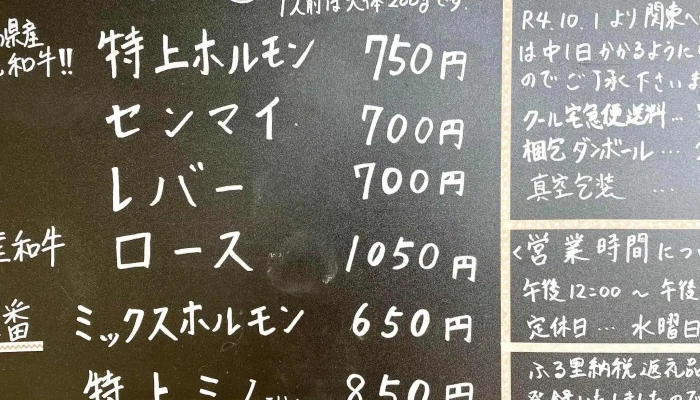 1人前は大体200gです。
県産
和牛!!
特上ホルモン 750円
センマイ 700円
レバー 700円
和牛
ロース 1050円
番
ミックスホルモン 650円
特上ミノ 850円
R4.10.1より関東へ
は中1日かかるように
のでご了承下さいま
クール宅急便送料…
梱包ダンボール…
真空包装 …
<営業時間につ
午後12:00～午後
定休日…水曜日
ふる里納税返礼品
登録いたしましたので